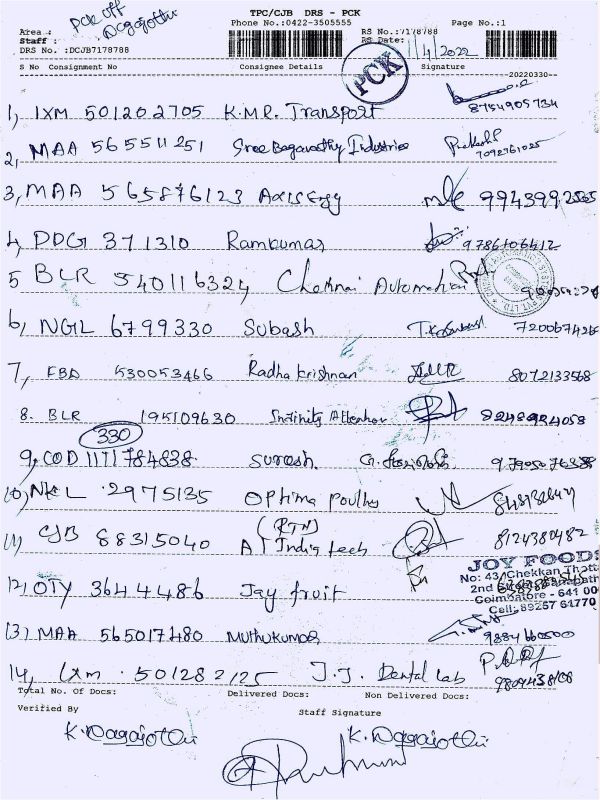 PCK off
Dgajothi
TPC/CJB DRS - PCK
Phone No.:0422-3505555
Page No.:1
Area :
Staff :
RS No.:7178788
RS Date:
1/4/2022
DRS No. :DCJB7178788
PCK
S No Consignment No Consignee Details Signature
20220330
1, IXM 501202705 K.M.R. Transport 8754905734
2, MAA 565511251 Sree Bagavathy Industries Prakash 7092761025
3, MAA 565876123 Axis Engg
4, PDG 371310 Ramkumar 9786106412
5 BLR 540116324 Chennai Automation
6, NGL 6799330 Subash 7200674265
7, EBD 530053466 Radha krishnan 8072133568
8. BLR 195109630 Infinity
330
9, COD 1171784838 Suresh
10, NKL 2975135 Optima poultry
(RTN)
11, CJB 88315040 A1 India tech 8124380482
JOY FOODS
No: 43, Chekkan Thottam
2nd
Coimbatore - 641 00
Cell: 89257 61770
12, OTY 3644486 Jay fruit
13, MAA 565017480 Muthukumar 9884660500
14, Ixm 501282125 J.J. Dental Lab
Total No. Of Docs: Delivered Docs: Non Delivered Docs:
Verified By Staff Signature
K. Dagajothi K. Dagajothi